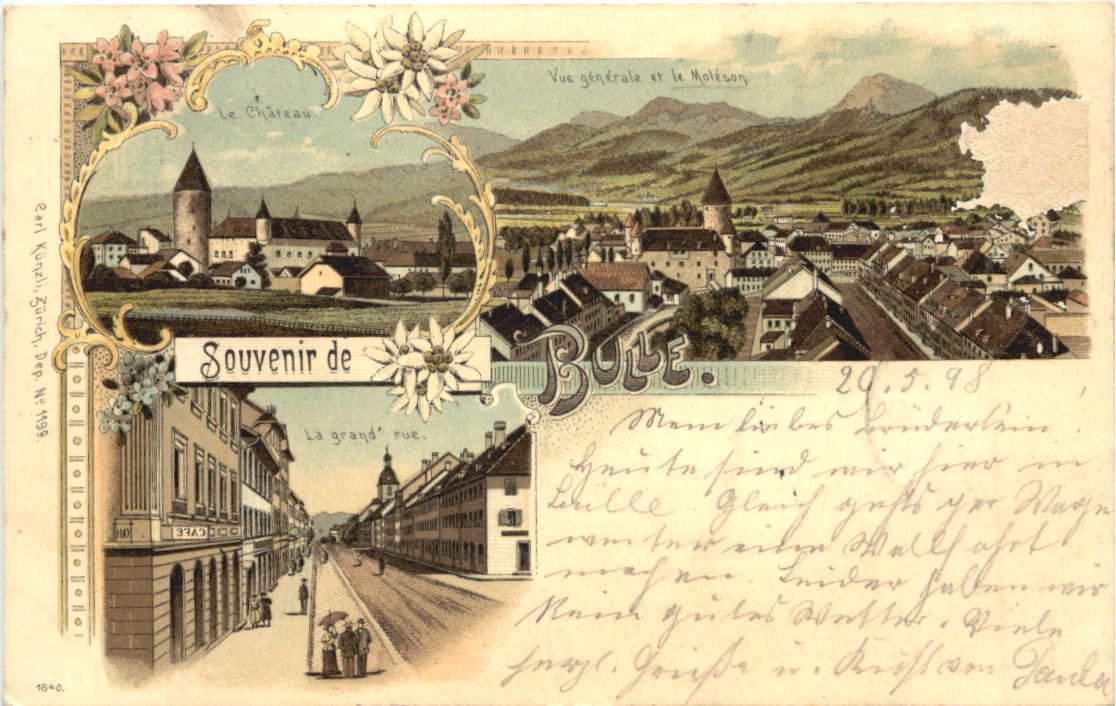 Le Château.
Vue générale et le Moléson.
Souvenir de
BULLE.
La grand' rue.
CAFÉ
Carl Künzli, Zürich, Dep. No 1199.
1640.
20.5.98
Mein liebes Brüderlein!
Heute sind wir hier in
Bülle. Gleich gehts per Wage
weiter eine Wallfahrt
machen. Leider haben wir
kein gutes Wetter. Viele
herzl. Grüße u. Kuß von